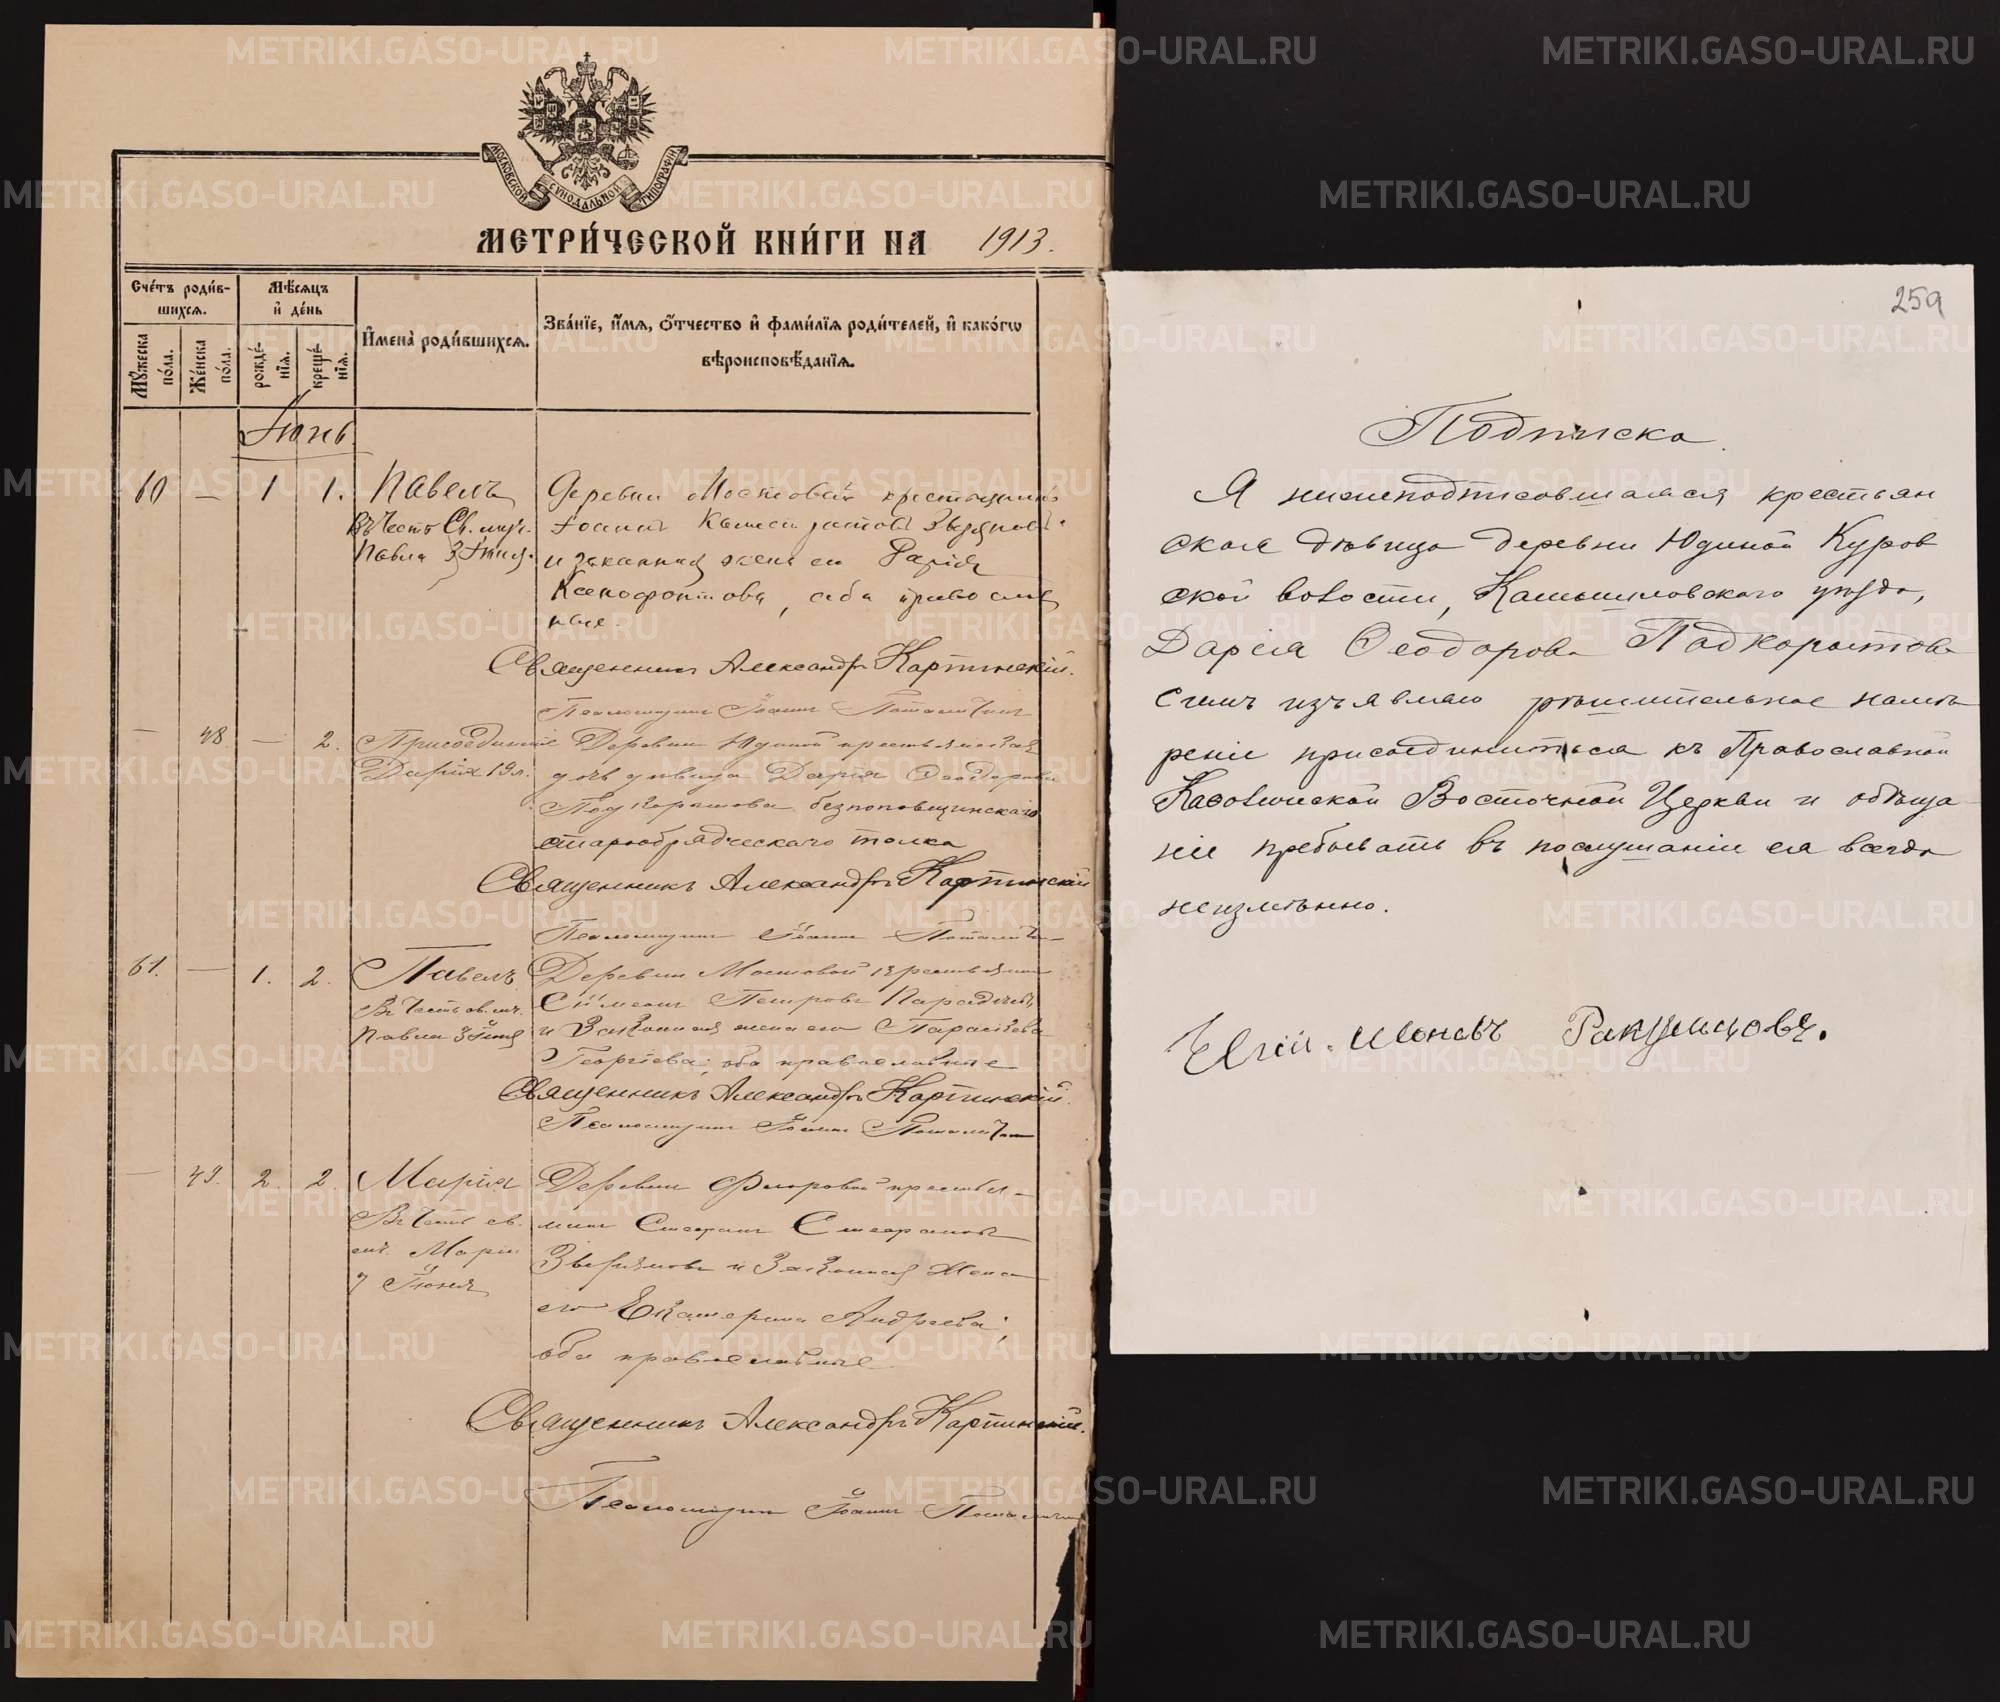 МОСКОВСКОЙ СУНОДАЛЬНОЙ ТИПОГРАФІИ
МЕТРИ́ЧЕСКОЙ КНИ́ГИ НА 1913.
Сче́тъ роди́вшихся.
Му́жеска по́ла.
Же́нска по́ла.
Мѣ́сяцъ и҆ де́нь
рожде́нїя.
креще́нїя.
И҆мена̀ роди́вшихся.
Зва́нїе, и҆́мя, ѻ҆́тчество и҆ фами́лїя роди́телей, и҆ како́гѡ
вѣроисповѣ́данїя.
Іюнь
60 — 1 1. Павелъ
Въ честь Св. муч.
Павла 3 Іюня.
Деревни Мостовой крестьянинъ
Іоаннъ
и законная жена его Дарія
Ксенофонтова, оба православ
ные.
Священникъ Александръ Карпинскій.
Псаломщикъ Іоаннъ
— 48 — 2. Присоединеніе
Дарія 19 л.
Деревни Юдиной крестьянская
дочь дѣвица Дарія Ѳеодорова
Подкорытова безпоповщинскаго
старообрядческаго толка
Священникъ Александръ Карпинскій
Псаломщикъ Іоаннъ
61. — 1. 2. Павелъ
Въ честь св. мч.
Павла 3 Іюня
Деревни Мостовой крестьянинъ
Сѵмеонъ Петровъ
и Законная жена его Параскева
Георгіева, оба православные
Священникъ Александръ Карпинскій.
Псаломщикъ Іоаннъ
— 49. 2. 2. Марія
Въ честь св.
мч. Маріи
7 Іюня
Деревни крестья-
нинъ Стефанъ Стефановъ
Звѣряковъ и Законная Жена
его Екатерина Андреева,
оба православные
Священникъ Александръ Карпинскій.
Псаломщикъ Іоаннъ
259
Подписка.
Я нижеподписовшаяся крестьян
ская дѣвица деревни Юдиной Куров
ской волости, Камышловскаго уѣзда,
Дарія Ѳеодорова Подкорытова
симъ изъявляю рѣшительное намѣ
реніе присоединиться къ Православной
Каѳолической Восточной Церкви и обѣща
ніе пребывать въ послушаніи ея всегда
неизмѣнно.
METRIKI.GASO-URAL.RU